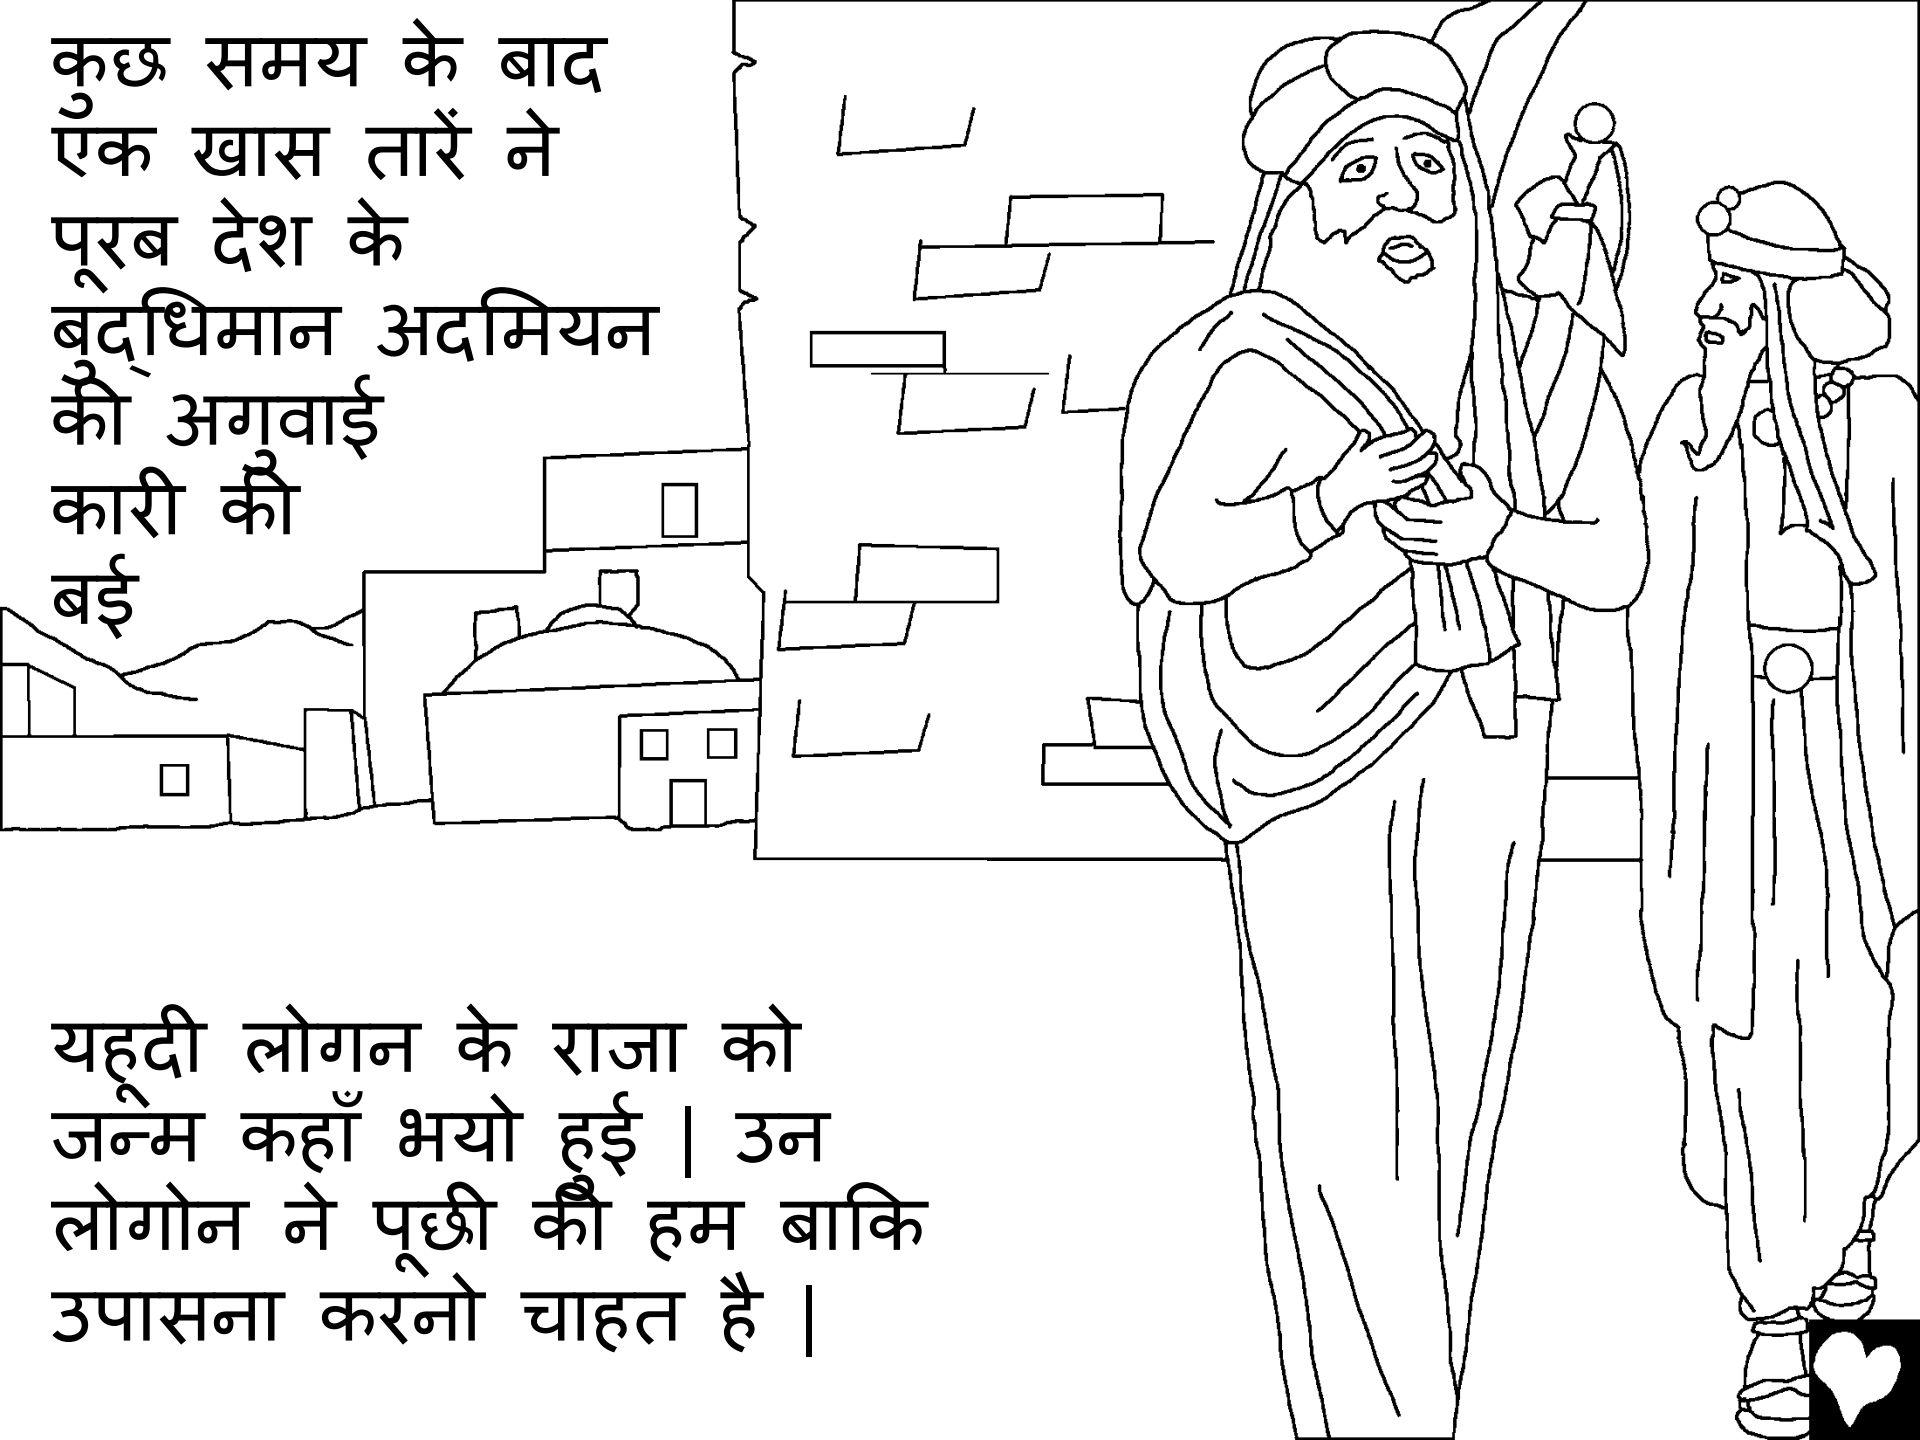 कुछ समय के बाद
एक खास तारें ने
पूरब देश के
बुद्धिमान अदमियन
की अगुवाई
कारी की
बई
यहूदी लोगन के राजा को
जन्म कहाँ भयो हुई | उन
लोगोन ने पूछी की हम बाकि
उपासना करनो चाहत है |